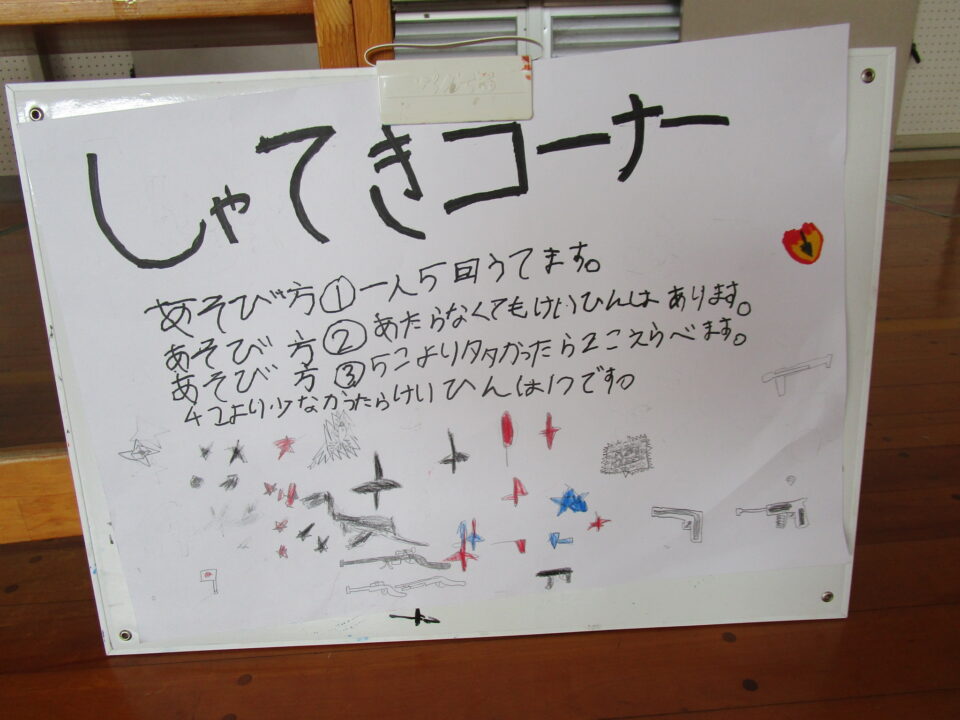 しゃてきコーナー
あそび方①一人5回うてます。
あそび方②あたらなくてもけいひんはあります。
あそび方③5こより多かったら2こえらべます。
4こより少なかったらけいひんは1つです。